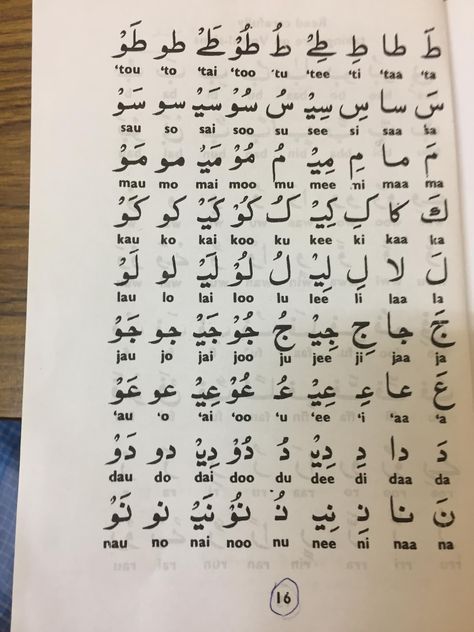 طَ طا طِ طِےْ طُ طُوْ طَےْ طو طَوْ
'tou 'to 'tai 'too 'tu 'tee 'ti 'taa 'ta
سَ سا سِ سِيْ سُ سُوْ سَيْ سو سَوْ
sau so sai soo su see si saa sa
مَ ما مِ مِيْ مُ مُوْ مَيْ مو مَوْ
mau mo mai moo mu mee mi maa ma
كَ كا كِ كِيْ كُ كُوْ كَيْ كو كَوْ
kau ko kai koo ku kee ki kaa ka
لَ لا لِ لِيْ لُ لُوْ لَيْ لو لَوْ
lau lo lai loo lu lee li laa la
جَ جا جِ جِيْ جُ جُوْ جَيْ جو جَوْ
jau jo jai joo ju jee ji jaa ja
عَ عا عِ عِيْ عُ عُوْ عَيْ عو عَوْ
'au 'o 'ai 'oo 'u 'ee 'i 'aa 'a
دَ دا دِ دِيْ دُ دُوْ دَيْ دو دَوْ
dau do dai doo du dee di daa da
نَ نا نِ نِيْ نُ نُوْ نَيْ نو نَوْ
nau no nai noo nu nee ni naa na
16